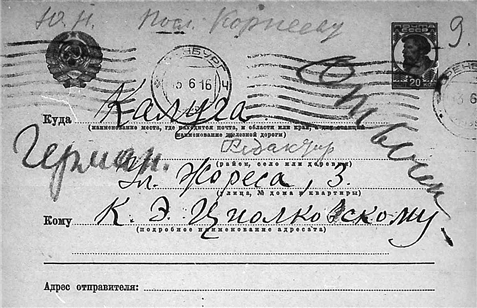 Ю. Н. Посл. Корнееву
ПОЧТА
СССР
20
9.
6 16
Куда Калуга
(наименование места, где находится почта, и области или края, а для станций
наименование железной дороги)
Герман.
(район, село или деревня)
Ул. Жореса, 3
(улица, № дома и квартиры)
Кому К. Э. Циолковскому
(подробное наименование адресата)
Адрес отправителя: